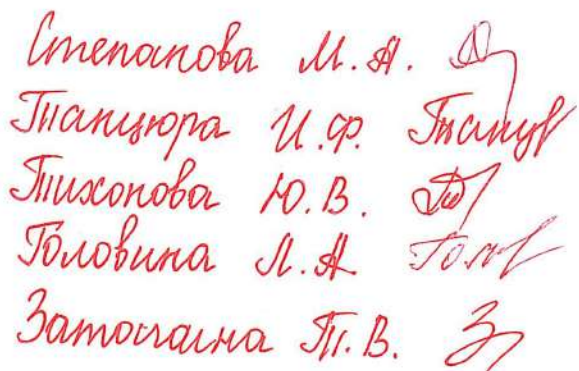 Степанова М.А.
Танцюра И.Ф. Танцур
Тихонова Ю.В.
Головина Л.А. Голов
Т.В.